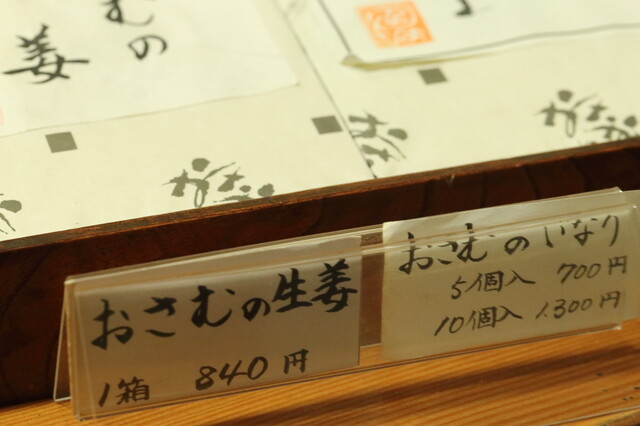 むの
生姜
おさむの生姜
1箱 840円
おさむのいなり
5個入 700円
10個入 1.300円